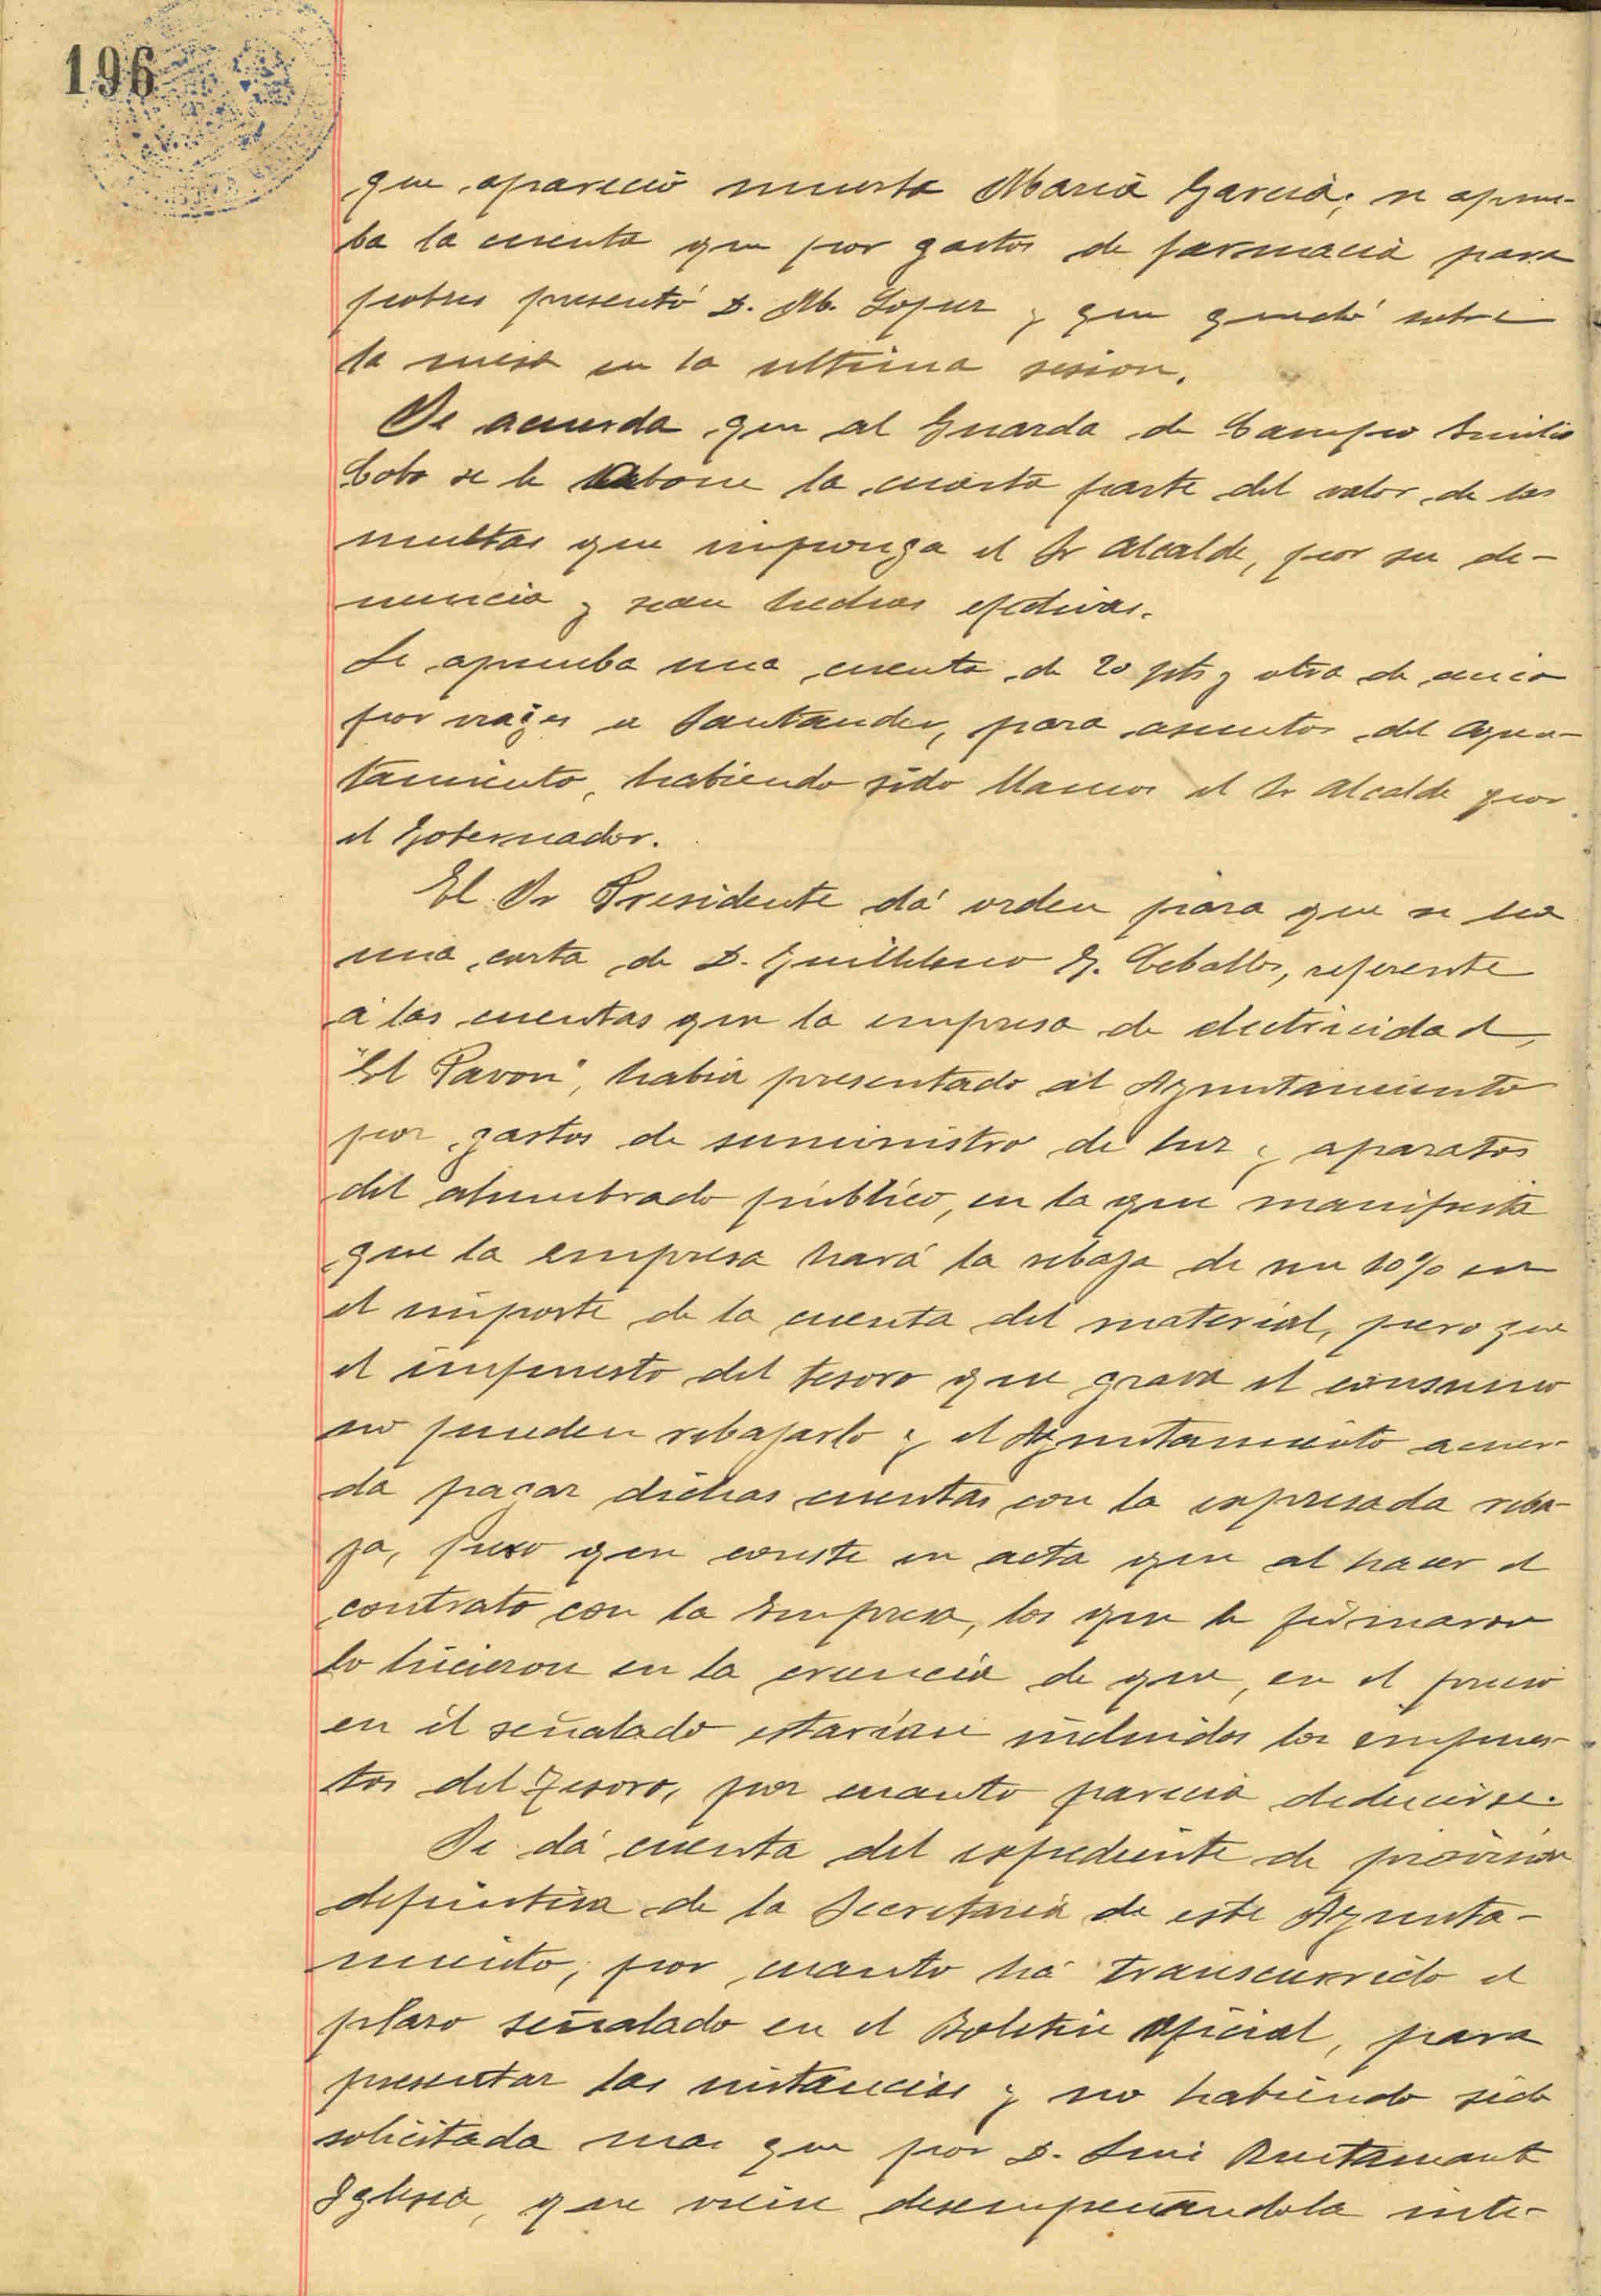 196
que apareció muerta María García; se aprue-
ba la cuenta que por gastos de farmacia para
pobres presentó D. M. Lopez y que quedó sobre
la mesa en la ultima sesion.
Se acuerda que al Guarda de Campo Emilio
Cobo se le abone la cuarta parte del valor de las
multas que imponga el Sr Alcalde, por su de-
nuncia y sean hechas efectivas.
Se aprueba una cuenta de 20 pts y otra de cinco
por viajes a Santander, para asuntos del Ayun-
tamiento, habiendo sido llamado el Sr Alcalde por
el Gobernador.
El Sr Presidente dá orden para que se lea
una carta de D. Guillermo G. Ceballos, referente
á las cuentas que la empresa de electricidad,
"El Pavon", habia presentado al Ayuntamiento
por gastos de suministro de luz y aparatos
del alumbrado público, en la que manifiesta
que la empresa hará la rebaja de un 10% en
el importe de la cuenta del material, pero que
el impuesto del tesoro que grava el consumo
no pueden rebajarlo y el Ayuntamiento acuer-
da pagar dichas cuentas con la expresada reba-
ja, pero que conste en acta que al hacer el
contrato con la Empresa, los que le firmaron
lo hicieron en la creencia de que, en el precio
en él señalado estarían incluidos los impues-
tos del Tesoro, por cuanto parecia deducirse.
Se dá cuenta del expediente de provision
definitiva de la Secretaría de este Ayunta-
miento, por cuanto ha transcurrido el
plazo señalado en el Boletin Oficial, para
presentar las instancias y no habiendo sido
solicitada mas que por D. Luis Bustamante
Iglesia, que viene desempeñandola inte-